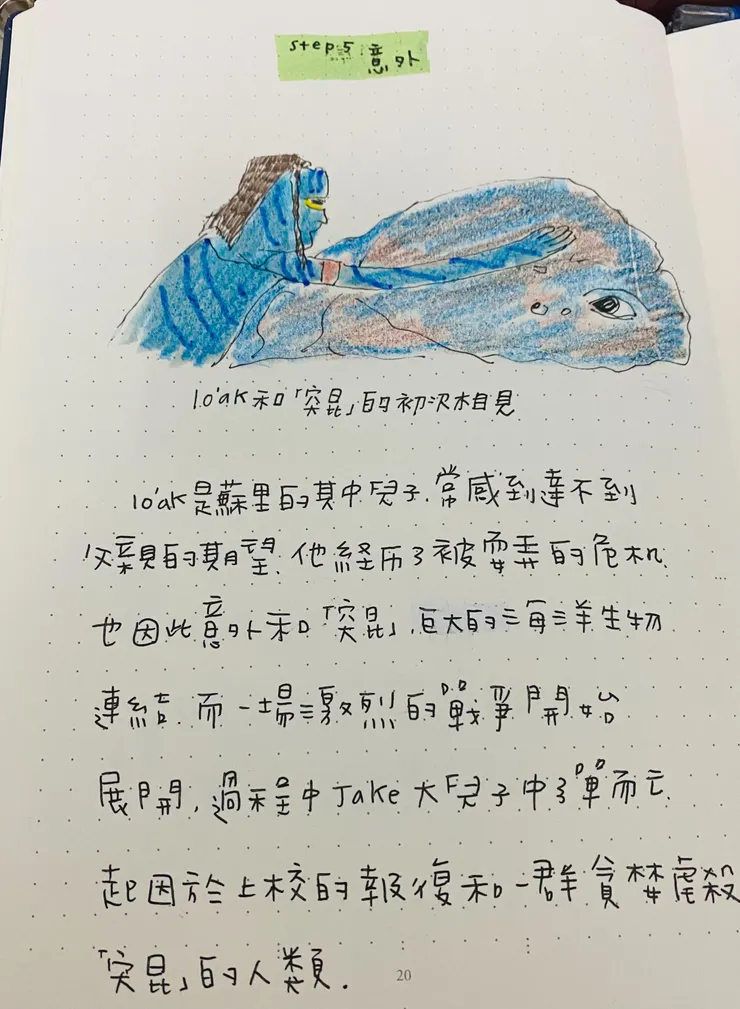 step 5 意外
lo'ak 和「突昆」的初次相見
lo'ak是蘇里的其中兒子.常感到達不到
父親的期望.他経历了被耍弄的危机.
也因此意外和「突昆」.巨大的海洋生物
連結.而一場激烈的戰爭開始
展開,過程中Jake大兒子中了彈而亡.
起因於上校的報復和一群貪婪虐殺
「突昆」的人類.
20